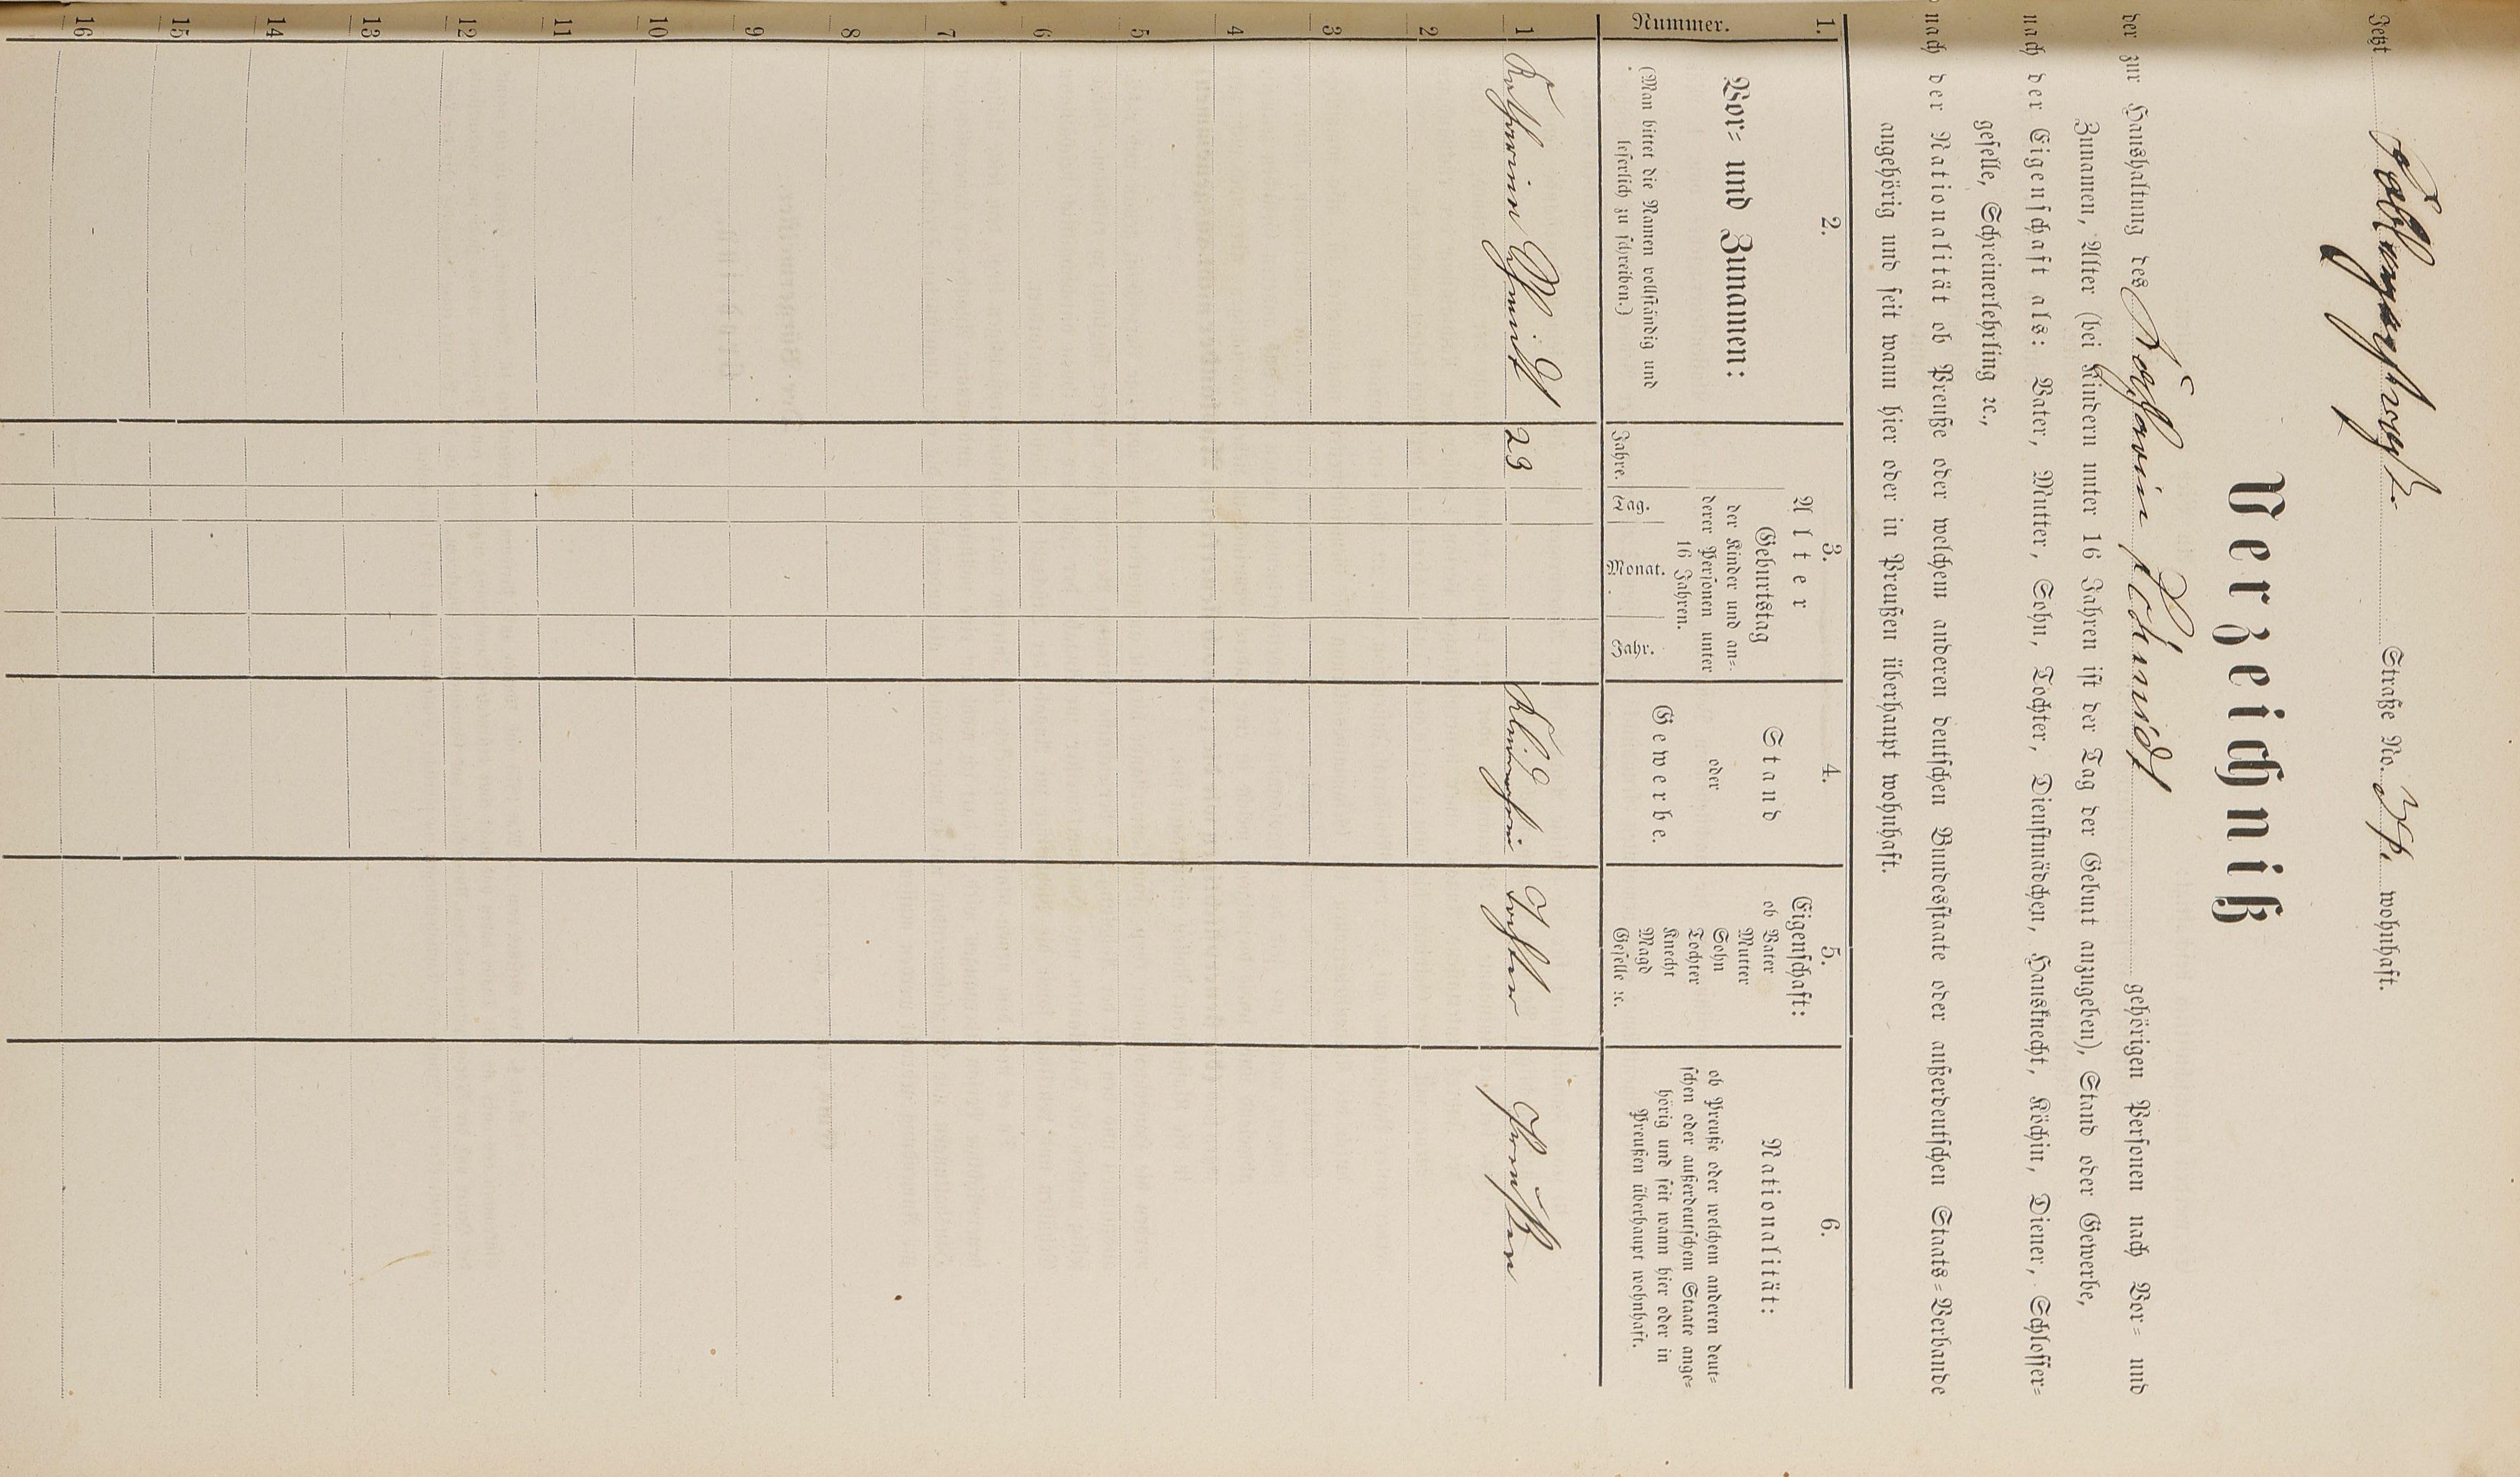 Jetzt Straße No. wohnhaft.
Verzeichniß
der zur Haushaltung des Katharin Schmidt gehörigen Personen nach Vor- und
Zunamen, Alter (bei Kindern unter 16 Jahren ist der Tag der Geburt anzugeben), Stand oder Gewerbe,
nach der Eigenschaft als: Vater, Mutter, Sohn, Tochter, Dienstmädchen, Hausknecht, Köchin, Diener, Schlosser-
geselle, Schreinerlehrling ꝛc.,
nach der Nationalität ob Preuße oder welchem anderen deutschen Bundesstaate oder außerdeutschen Staats-Verbande
angehörig und seit wann hier oder in Preußen überhaupt wohnhaft.
1.
Nummer.
2.
Vor- und Zunamen:
(Man bittet die Namen vollständig und
leserlich zu schreiben.)
3.
Alter
Geburtstag
der Kinder und an-
derer Personen unter
16 Jahren.
Jahre.
Tag.
Monat.
Jahr.
4.
Stand
oder
Gewerbe.
5.
Eigenschaft:
ob Vater
Mutter
Sohn
Tochter
Knecht
Magd
Geselle ꝛc.
6.
Nationalität:
ob Preuße oder welchem anderen deut-
schen oder außerdeutschem Staate ange-
hörig und seit wann hier oder in
Preußen überhaupt wohnhaft.
1 Katharina Schmidt 23 Tochter Preußen
2
3
4
5
6
7
8
9
10
11
12
13
14
15
16